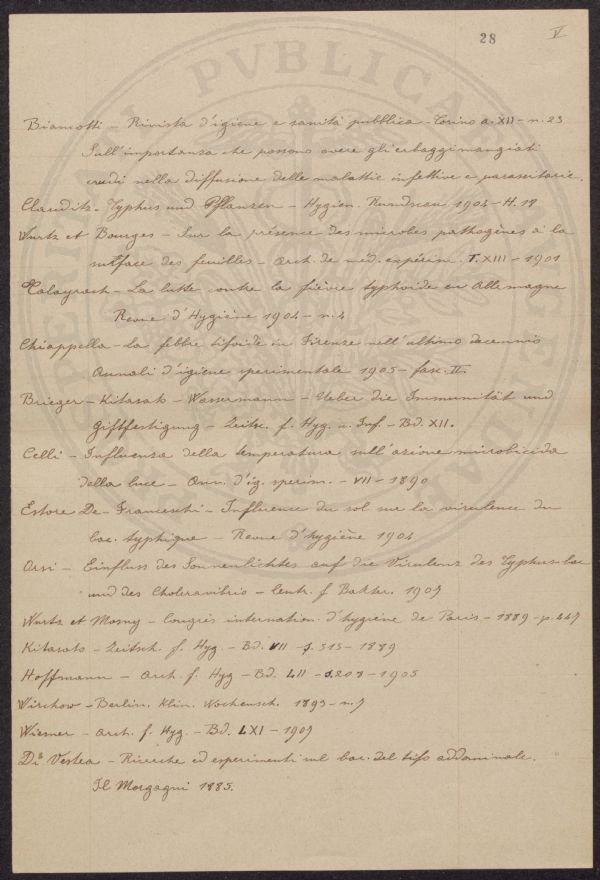 28 V
Biancotti – Rivista d'igiene e sanità pubblica – Torino a. XII – n. 23
Sull'importanza che possono avere gli erbaggi mangiati
crudi nella diffusione delle malattie infettive e parassitarie.
Clauditz – Typhus und Pflanzen – Hygien. Rundscau 1904 – H. 18
Wurtz et Bourges – Sur la présence des microbes pathogènes à la
surface des feuilles – Arch. de méd. expérim. T. XIII – 1901
La lutte contre la fièvre typhoide en Allemagne
Revue d'Hygiène 1904 – n. 4
Chiappella – La febbre tifoide in Firenze nell'ultimo decennio
Annali d'igiene sperimentale 1905 – fasc. II.
Brieger – Kitasato – Wassermann – Ueber die Immunität und
Giftfestigung – Zeitsc. f. Hyg. u. Inf. – Bd. XII.
Celli – Influenza della temperatura sull'azione microbicida
della luce – Ann. d'ig. sperim. – VII – 1890
De Franceschi – Influence du sol sur la virulence du
bac. typhique – Revue d'hygiène 1904
Orsi – Einfluss des Sonnenlichtes auf die Virulenz des Typhus-bac
und des Choleravibrio – Centr. f. Bakter. 1907
Wurtz et Mosny – Congrès internation. d'hygiène de Paris – 1889 – p.
Kitasato – Zeitsch. f. Hyg. – Bd. VII – S. 515 – 1889
Hoffmann – Arch. f. Hyg – Bd. LII – S. 208 – 1905
Wirchow – Berlin. Klin. Wochensch. 1893 – n. 7
Wiesner – Arch. f. Hyg. – Bd. LXI – 1907
Di Vestea – Ricerche ed esperimenti sul bac. del tifo addominale.
Il Morgagni 1885.